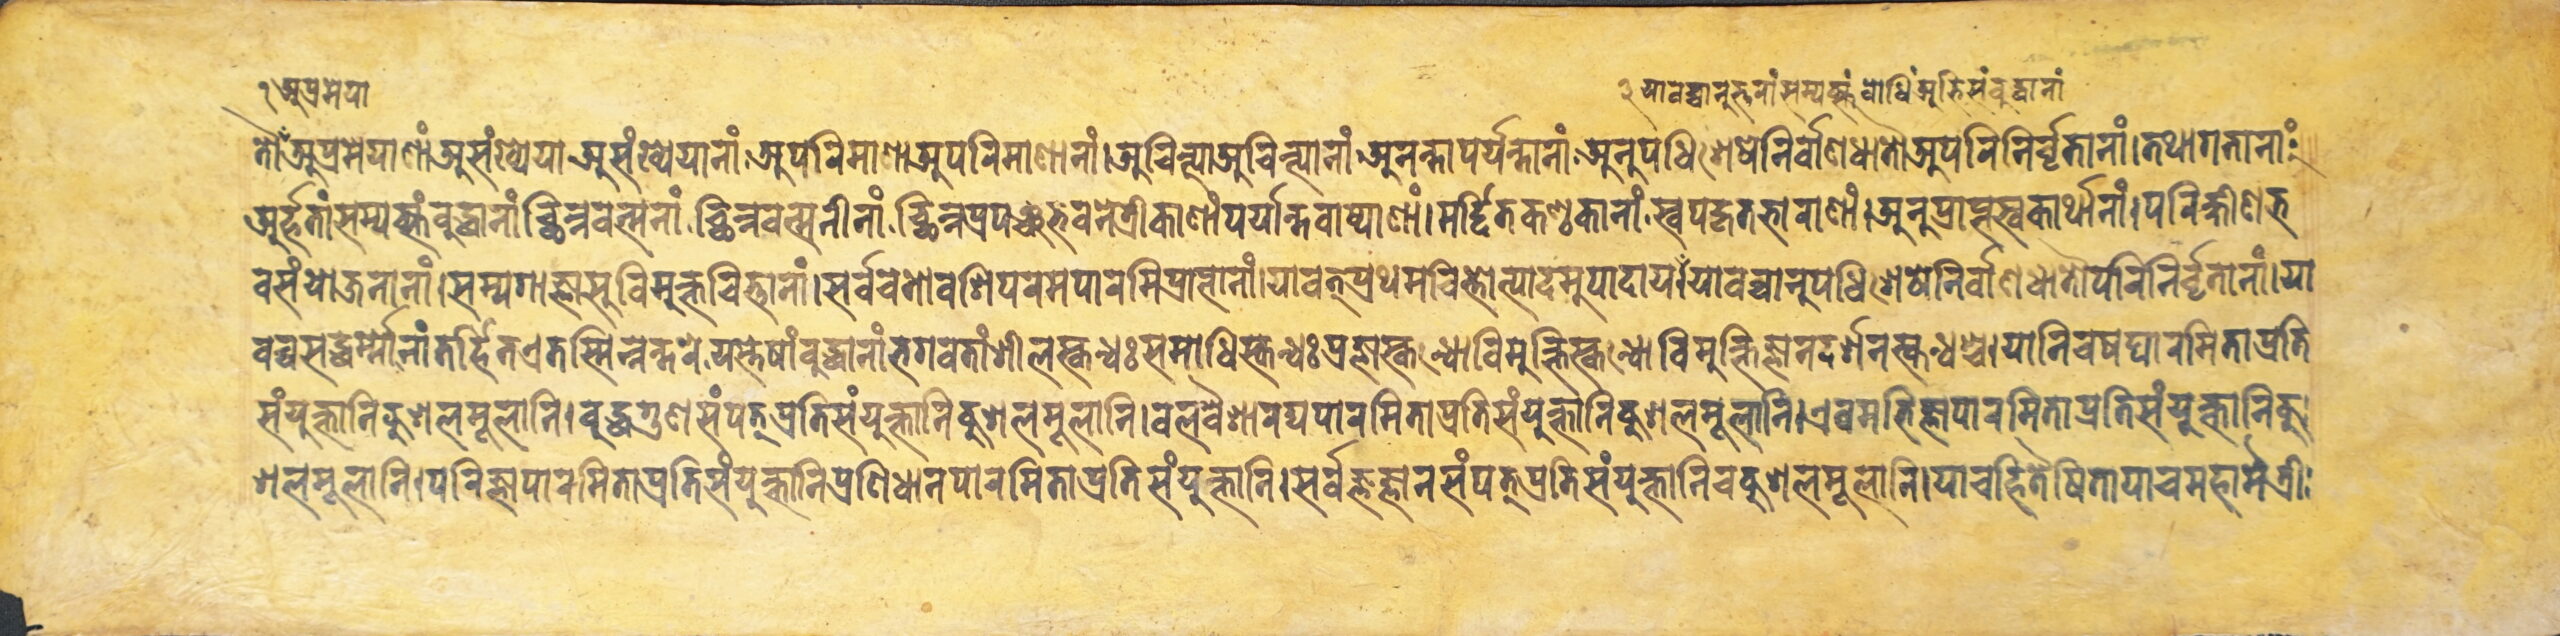 १ अप्रमेया ३ यावच्चानुत्तरांसम्यक्संबोधिंअभिसंबुद्धानां
तौअप्रमेयाणांअसंख्येयाअसंख्येयानां।अपरिमाणाअपरिमाणानां।अचिन्त्याअचिन्त्यानां।अनन्तापर्यन्तानां।अनुपधिशेषेनिर्वाणधातौअपरिनिर्वृतानां।तथागतानां
अर्हतांसम्यक्संबुद्धानांच्छिन्नवर्त्मनां।च्छिन्नवर्त्मनीनां।च्छिन्नप्रपञ्चभवनेत्रीकाणांपर्यान्तवाष्पाणां।मर्द्दितकण्टकानां।स्वपहृतभाराणां।अनुप्राप्तस्वकार्थानां।परिक्षीणभ
वसंयोजनानां।सम्यगाज्ञासुविमुक्तचित्तानां।सर्वचेतोवशिपरमपारमिप्राप्तानां।यावत्प्रथमचित्तोत्पादमुपादाय।यावच्चानुपधिशेषेनिर्वाणधातौपरिनिर्वृतानां।या
वच्चसद्धर्म्मोनांतर्हितएतस्मिन्नन्तरे।यस्तेषांबुद्धानांभगवतांशीलस्कन्धःसमाधिस्कन्धःप्रज्ञास्कन्धोविमुक्तिस्कन्धोविमुक्तिज्ञानदर्शनस्कन्धश्च।यानिचषट्पारमिताप्रति
संयुक्तानिकुशलमूलानि।बुद्धगुणसंपत्प्रतिसंयुक्तानिकुशलमूलानि।बलवैशारद्यपारमिताप्रतिसंयुक्तानिकुशलमूलानि।एवमभिज्ञापारमिताप्रतिसंयुक्तानिकु
शलमूलानि।परिज्ञापारमिताप्रतिसंयुक्तानिप्रणिधानपारमिताप्रतिसंयुक्तानि।सर्वज्ञज्ञानसंपत्प्रतिसंयुक्तानिचकुशलमूलानि।याचहितैषितायाचमहामैत्री